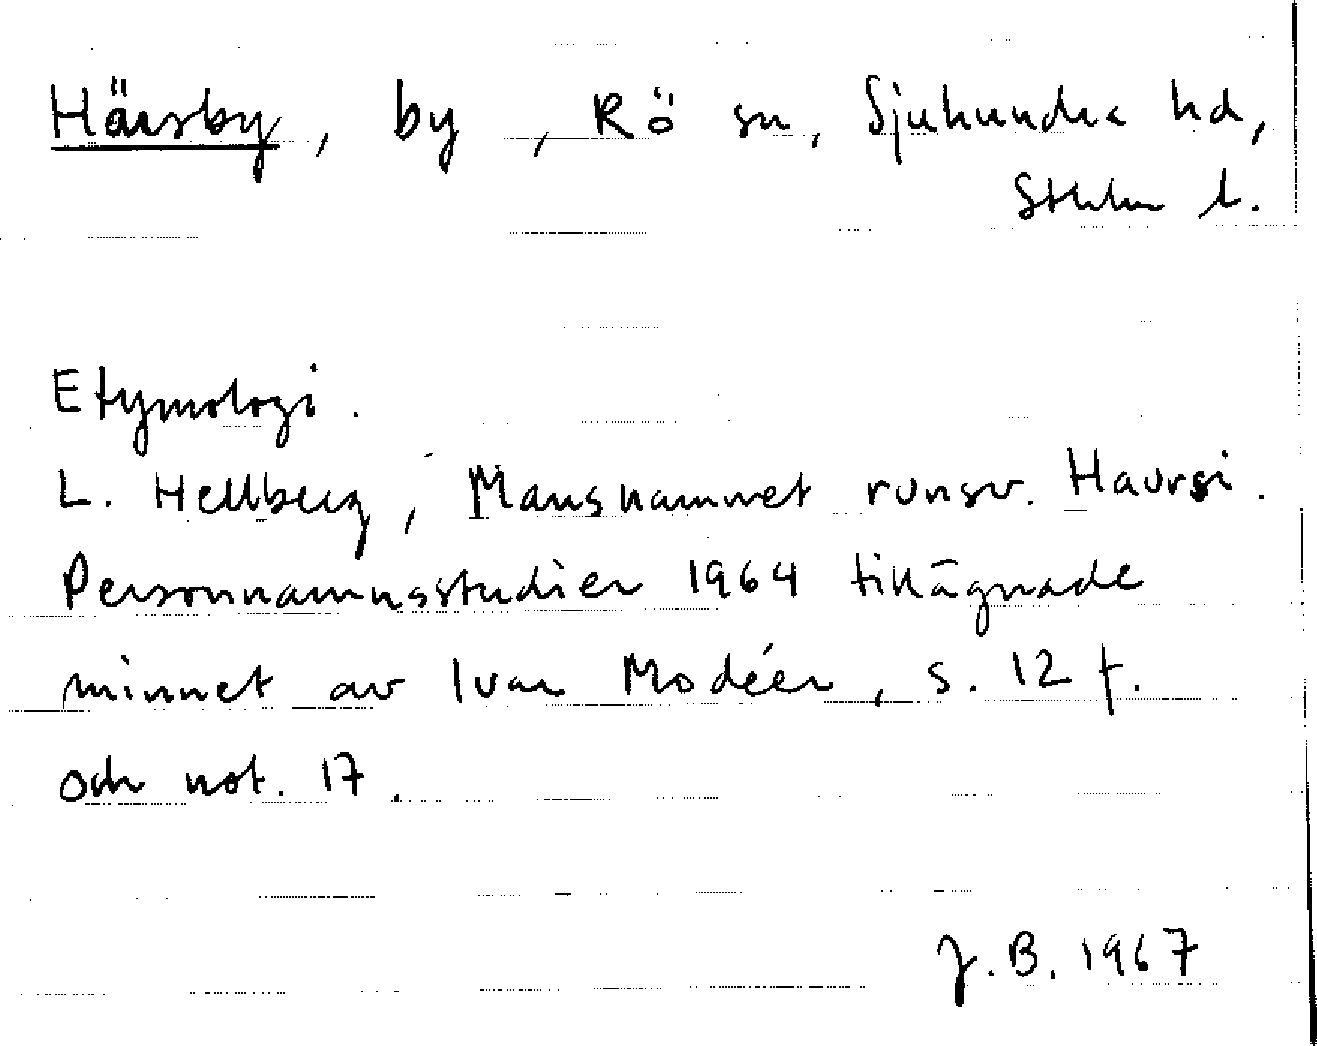 Härsby, by, Rö sn, Sjuhundra hd,
Sthlm l.
Etymologi.
L. Hellberg, Mansnamnet runsv. Haursi.
Personnamnsstudier 1964 tillägnade
minnet av Ivar Modéer, s. 12 f.
och not. 17.
J. B. 1967